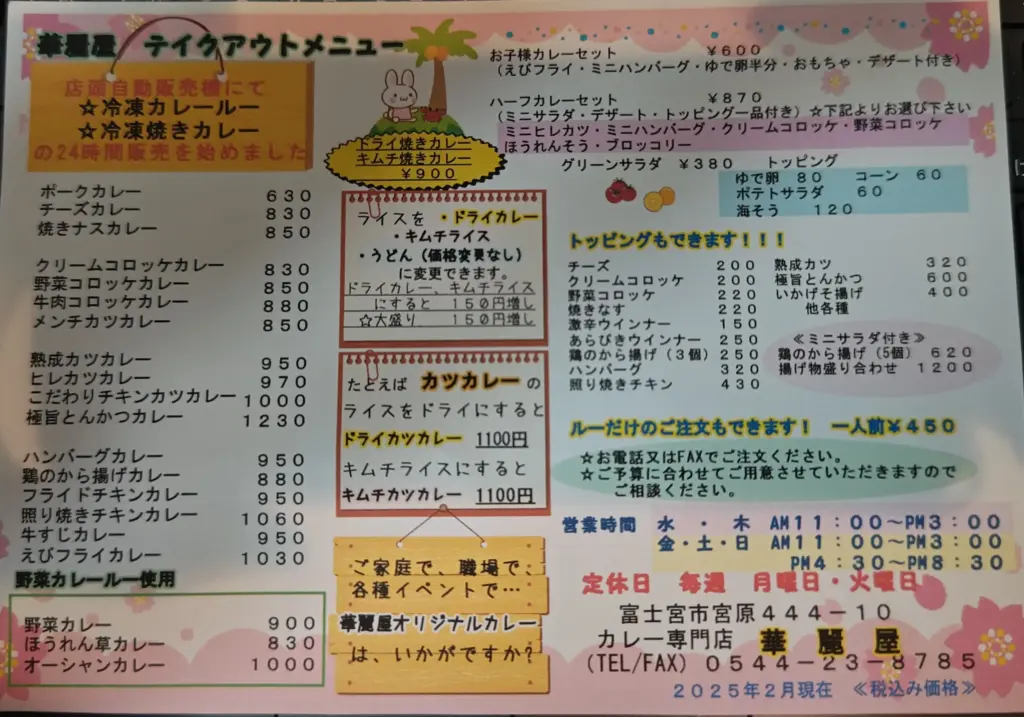 華麗屋　テイクアウトメニュー
店頭自動販売機にて
☆冷凍カレールー
☆冷凍焼きカレー
の24時間販売を始めました
ポークカレー　630
チーズカレー　830
焼きナスカレー　850
クリームコロッケカレー　830
野菜コロッケカレー　850
牛肉コロッケカレー　880
メンチカツカレー　850
熟成カツカレー　950
ヒレカツカレー　970
こだわりチキンカツカレー　1000
極旨とんかつカレー　1230
ハンバーグカレー　950
鶏のから揚げカレー　880
フライドチキンカレー　950
照り焼きチキンカレー　1060
牛すじカレー　950
えびフライカレー　1030
野菜カレールー使用
野菜カレー　900
ほうれん草カレー　830
オーシャンカレー　1000
ドライ焼きカレー
キムチ焼きカレー
￥900
ライスを・ドライカレー
・キムチライス
・うどん（価格変更なし）
に変更できます。
ドライカレー、キムチライス
にすると　150円増し
☆大盛り　150円増し
たとえば　カツカレーの
ライスをドライにすると
ドライカツカレー　1100円
キムチライスにすると
キムチカツカレー　1100円
ご家庭で、職場で、
各種イベントで…
華麗屋オリジナルカレー
は、いかがですか？
お子様カレーセット　￥600
（えびフライ・ミニハンバーグ・ゆで卵半分・おもちゃ・デザート付き）
ハーフカレーセット　￥870
（ミニサラダ・デザート・トッピング一品付き）☆下記よりお選び下さい
ミニヒレカツ・ミニハンバーグ・クリームコロッケ・野菜コロッケ
ほうれんそう・ブロッコリー
グリーンサラダ　￥380　トッピング
ゆで卵　80　コーン　60
ポテトサラダ　60
海そう　120
トッピングもできます！！！
チーズ　200
クリームコロッケ　200
野菜コロッケ　220
焼きなす　220
激辛ウインナー　150
あらびきウインナー　250
鶏のから揚げ（3個）　250
ハンバーグ　320
照り焼きチキン　430
熟成カツ　320
極旨とんかつ　600
いかげそ揚げ　400
他各種
≪ミニサラダ付き≫
鶏のから揚げ（5個）　620
揚げ物盛り合わせ　1200
ルーだけのご注文もできます！　一人前￥450
☆お電話又はFAXでご注文ください。
☆ご予算に合わせてご用意させていただきますので
ご相談ください。
営業時間　水・木　AM11：00～PM3：00
金・土・日　AM11：00～PM3：00
PM4：30～PM8：30
定休日　毎週　月曜日・火曜日
富士宮市宮原444－10
カレー専門店　華麗屋
（TEL/FAX）0544－23－8785
2025年2月現在　≪税込み価格≫